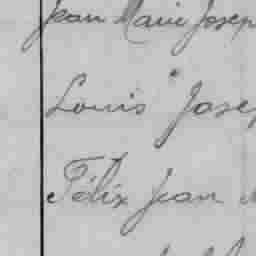 Jean Marie Josep
Louis " Josep
Félix Jean